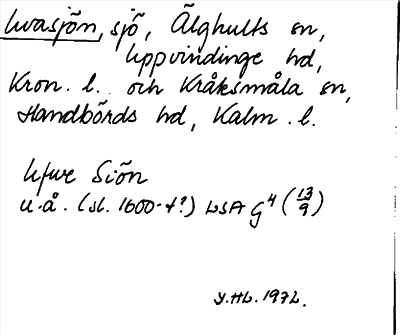 Uvasjön, sjö, Älghults sn,
Uppvidinge hd,
Kron. l. och Kråksmåla sn,
Handbörds hd, Kalm. l.
Ufwe Siön
u.å. (sl. 1600-t?) LSA G4 (13/9)
Y.HL. 1972.